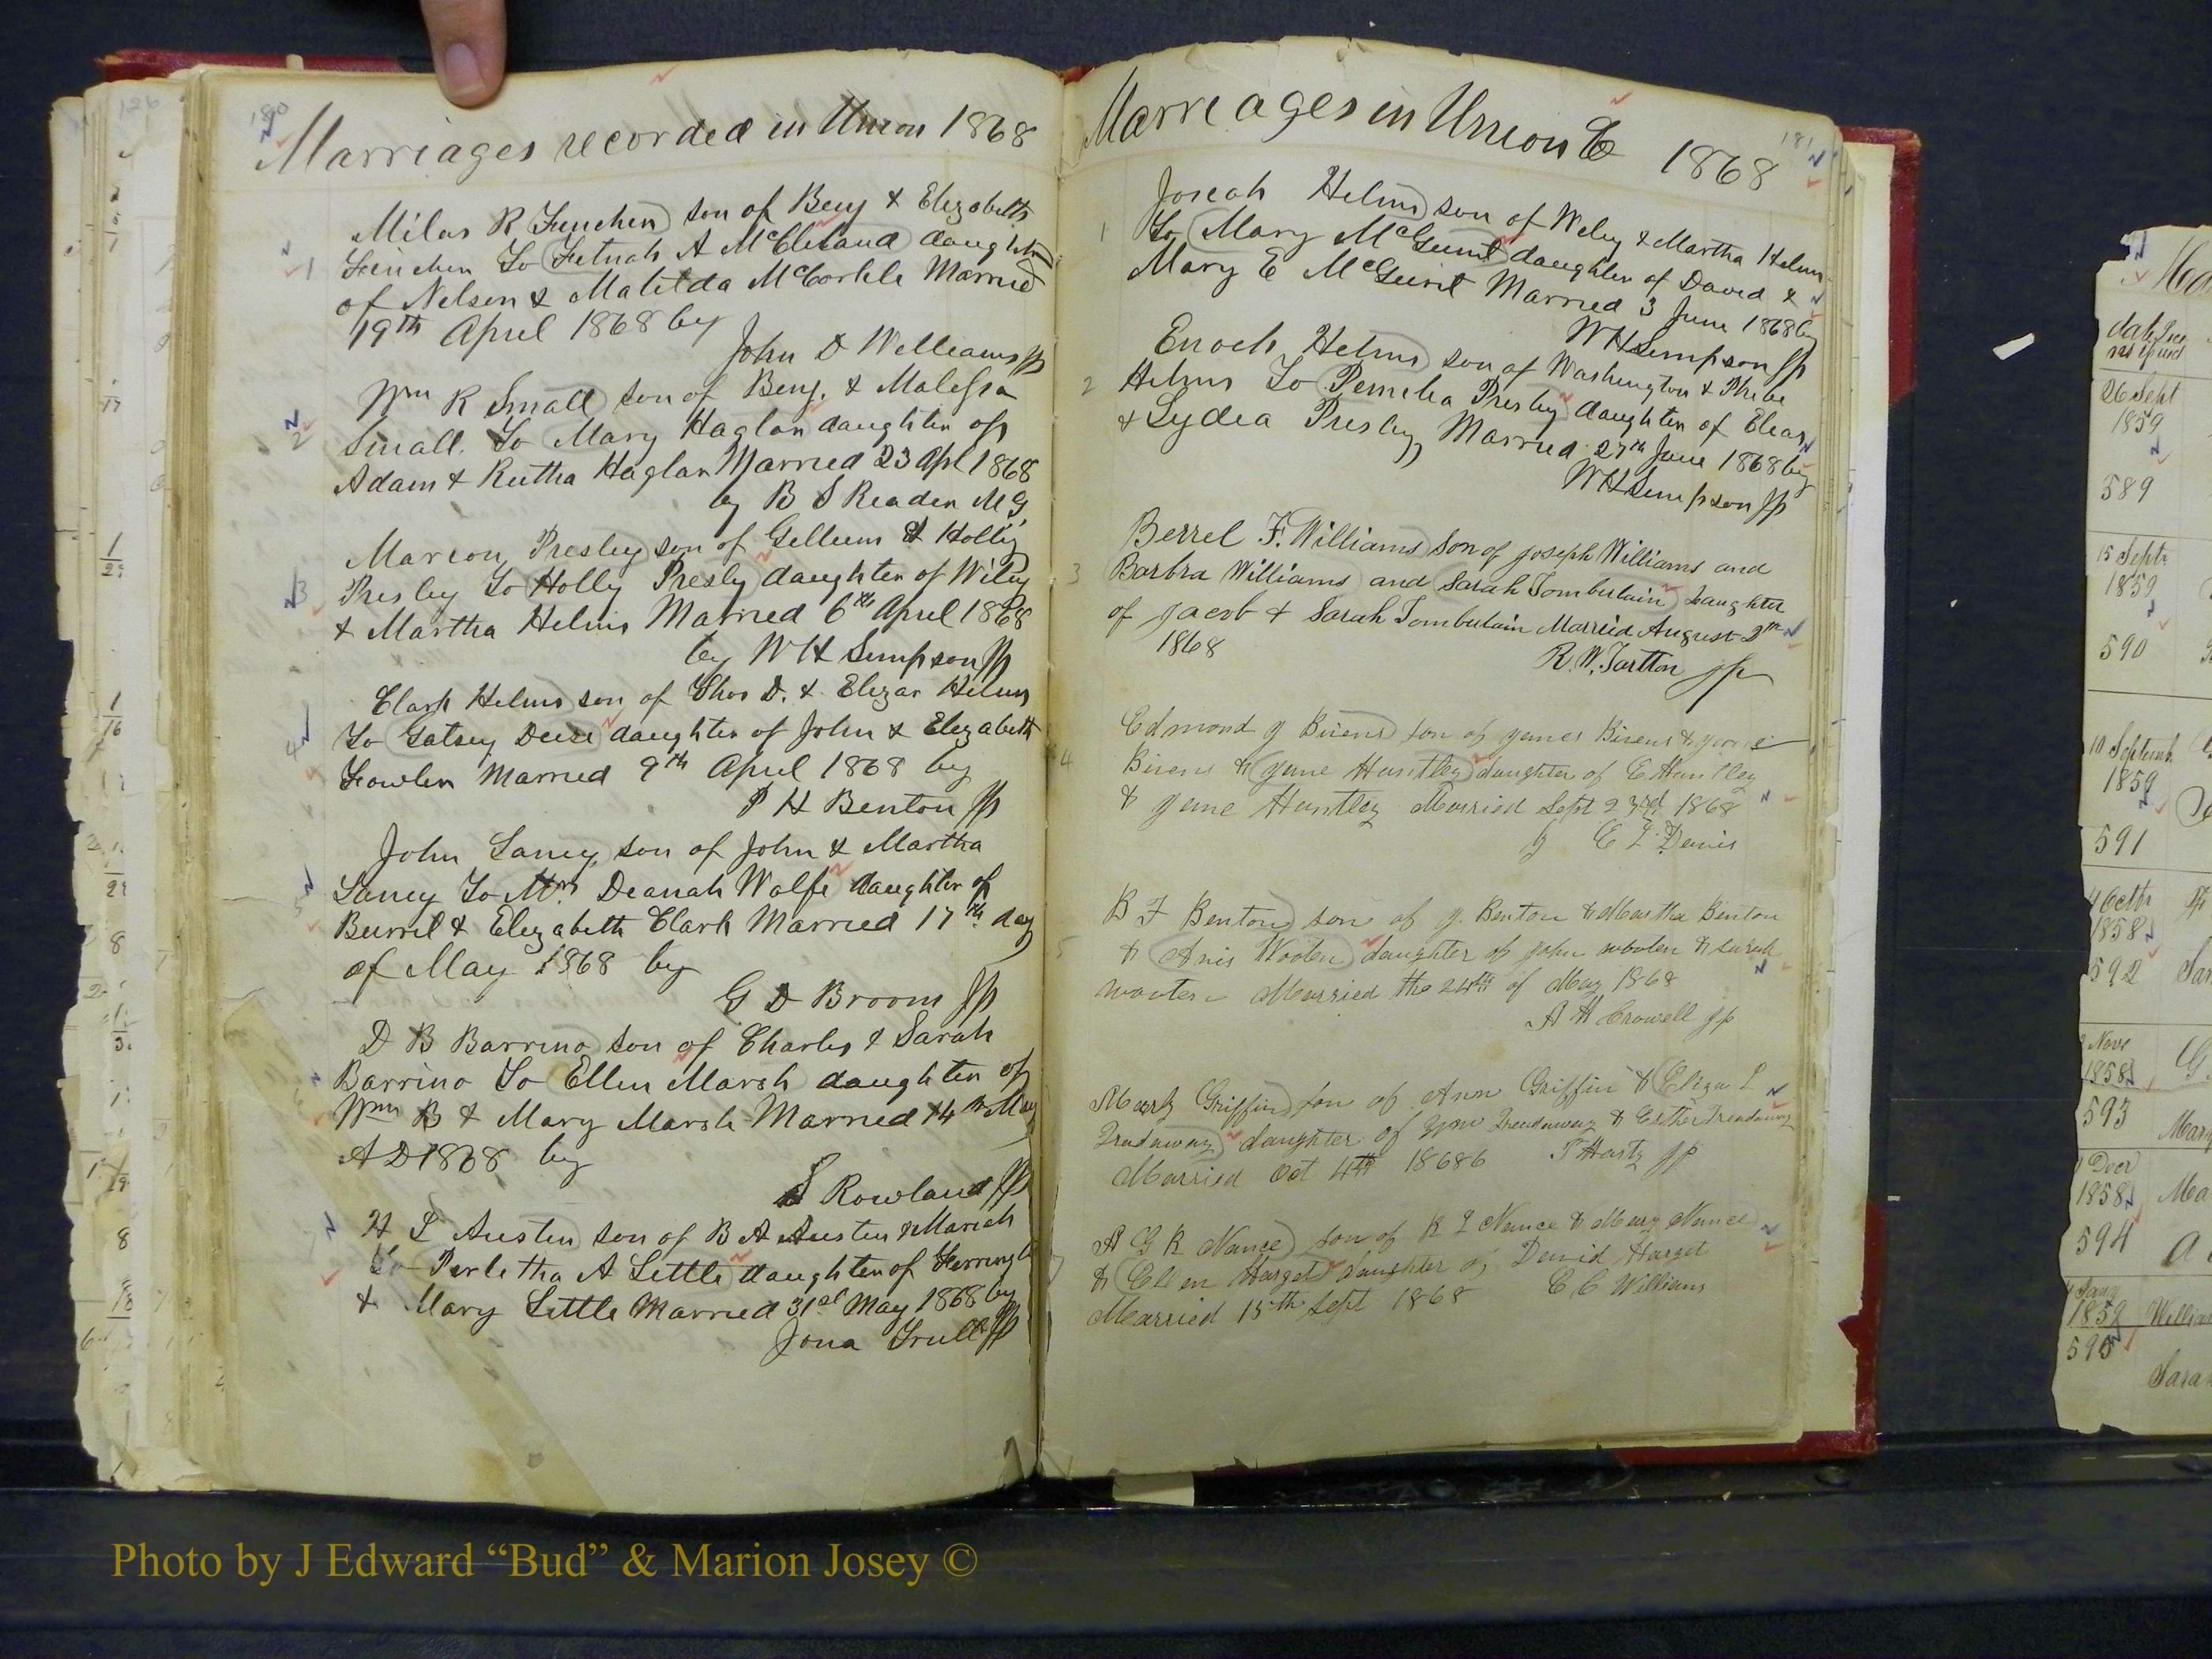 180
Marriages recorded in Union 1868
Milas R Funchen son of Benj & Elizabeth
1 Funchen To Fetnah A McCleland daughter
of Nelson & Matilda McCorkle Married
19th April 1868 by
John D Williams JP
Wm R Small son of Benj. & Malissa
2 Small. To Mary Haglar daughter of
Adam & Rutha Haglar Married 23 Apl 1868
by B S Reader M G
Marion Presley son of Gillum & Holly
3 Presley To Holly Presly daughter of Wiley
& Martha Helms Married 6th April 1868
by W H Simpson JP
Clark Helms son of Thos D. & Elizar Helms
4 To Gatsey Deese daughter of John & Elizabeth
Fowler Married 9th April 1868 by
P H Benton JP
John Laney son of John & Martha
5 Laney To Mrs Deanah Wolfe daughter of
Burrel & Elizabeth Clark Married 17th day
of May 1868 by
G D Broom JP
D B Barrino son of Charles & Sarah
Barrino To Ellen Marsh daughter of
Wm B & Mary Marsh Married 14th May
A D 1868 by
S Rowland JP
H L Austin son of B A Austin & Mariah
To Perletha A Little daughter of
& Mary Little Married 31st May 1868 by
Jona Trull JP
Marriages in Union Co 1868
181
Joseah Helms son of Wiley & Martha Helms
1 To Mary McGuirt daughter of David &
Mary E McGuirt Married 3 June 1868 by
W H Simpson JP
Enoch Helms son of Washington & Phebe
2 Helms To Pemelia Presley daughter of Elias
& Lydia Presley Married 27th June 1868 by
W H Simpson JP
Berrel F. Williams Son of Joseph Williams and
3 Barbra Williams and Sarah Tomberlain Daughter
of Jacob & Sarah Tomberlain Married August 2nd
1868
R. W. Tartton JP
Edmond J Bivens son of James Bivens &
4 Bivens & Jane Huntley daughter of E Huntley
& Jane Huntley Married Sept 23rd 1868
by E L Davis
B F Benton son of J. Benton & Martha Benton
5 & Anis Wooten daughter of John wooten & Sarah
wooten Married the 24th of May 1868
A H Crowell JP
Mark Griffin son of Ann Griffin & Eliza L
Treadaway daughter of Wm Treadaway & Esther Treadaway
Married Oct 4th 1868 6 T Hasty JP
A G R Nance son of R L Nance & Mary Nance
7 & Ellen Harget daughter of David Harget
Married 15th Sept 1868 C C Williams
date
26 Sept
1859
589
15 Septr
1859
590
10 Septemb
1859
591
4 Octr
1858
592
Nove
1858
593
Mary
Decr
1858
594
A
Jany
1859
William
595
Sarah
Photo by J Edward “Bud” & Marion Josey ©